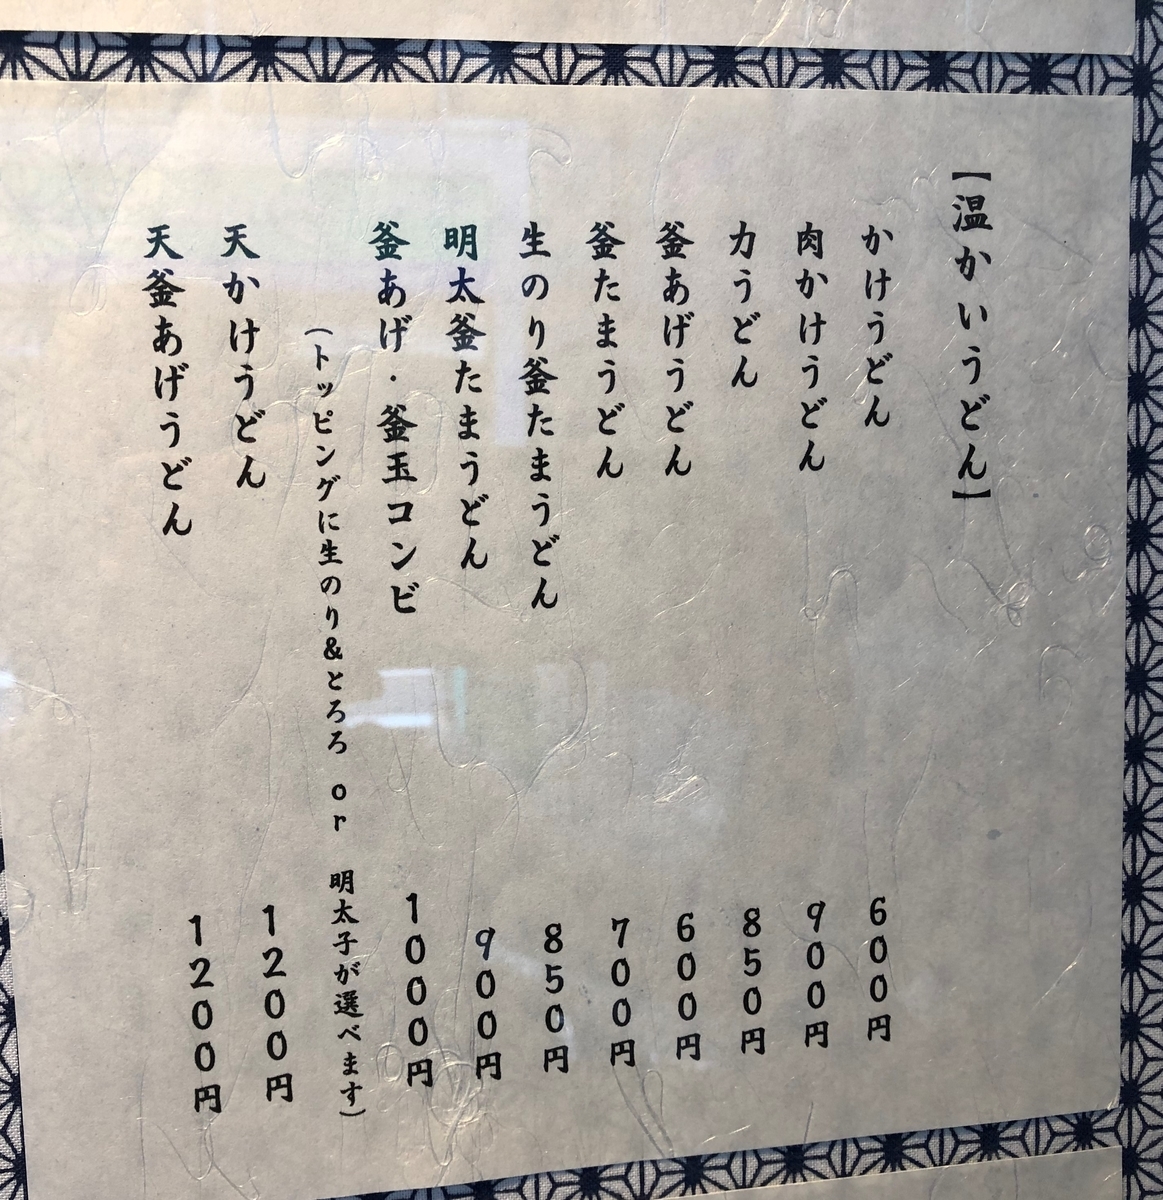 【温かいうどん】
かけうどん 600円
肉かけうどん 900円
力うどん 850円
釜あげうどん 600円
釜たまうどん 700円
生のり釜たまうどん 850円
明太釜たまうどん 900円
釜あげ・釜玉コンビ 1000円
(トッピングに生のり&とろろ or 明太子が選べます)
天かけうどん 1200円
天釜あげうどん 1200円